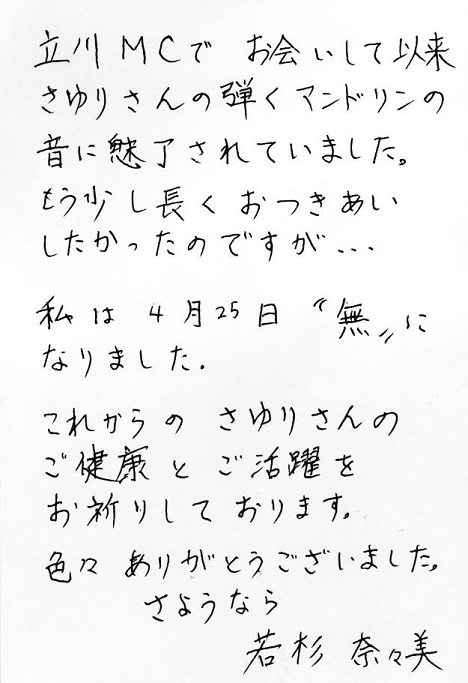 立川MCで お会いして以来
さゆりさんの弾くマンドリンの
音に魅了されていました。
もう少し長くおつきあい
したかったのですが・・・
私は 4月25日 〝無〟に
なりました.
これからの さゆりさんの
ご健康と ご活躍を
お祈りしております。
色々 ありがとうございました。
さようなら
若杉 奈々美